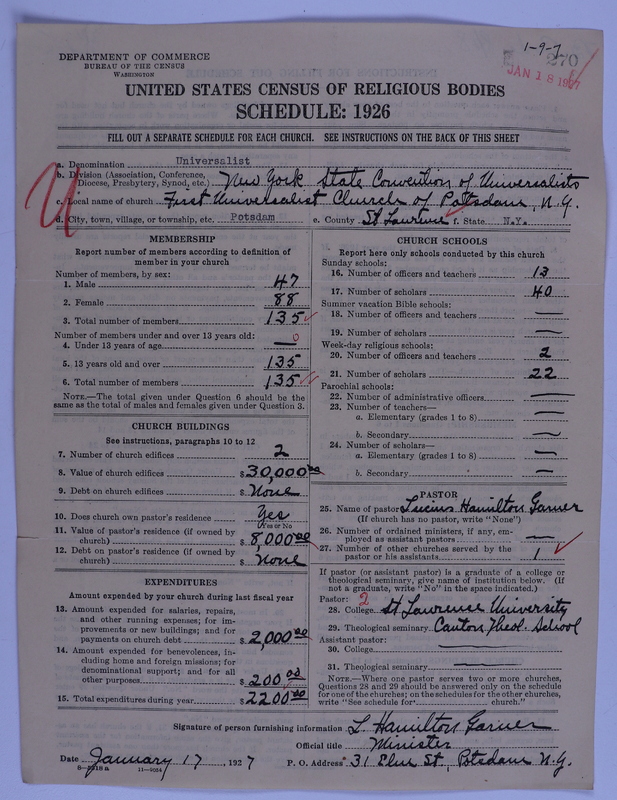 1-9-7
270
JAN 18 1927
DEPARTMENT OF COMMERCE
BUREAU OF THE CENSUS
WASHINGTON
UNITED STATES CENSUS OF RELIGIOUS BODIES
SCHEDULE: 1926
FILL OUT A SEPARATE SCHEDULE FOR EACH CHURCH. SEE INSTRUCTIONS ON THE BACK OF THIS SHEET
a. Denomination Universalist
b. Division (Association, Conference, Diocese, Presbytery, Synod, etc.) New York State Convention of Universalists
c. Local name of church First Universalist Church of Potsdam, N.Y.
d. City, town, village, or township, etc. Potsdam e. County St Lawrence f. State N.Y.
MEMBERSHIP
Report number of members according to definition of
member in your church
Number of members, by sex:
1. Male 47
2. Female 88
3. Total number of members 135
Number of members under and over 13 years old:
4. Under 13 years of age — 0
5. 13 years old and over 135
6. Total number of members 135
NOTE.—The total given under Question 6 should be
same as the total of males and females given under Question 3.
CHURCH BUILDINGS
See instructions, paragraphs 10 to 12
7. Number of church edifices 2
8. Value of church edifices $ 30,000 00
9. Debt on church edifices $ None
10. Does church own pastor's residence Yes
(Yes or No)
11. Value of pastor's residence (if owned by
church) $ 8,000 00
12. Debt on pastor's residence (if owned by
church) $ None
EXPENDITURES
Amount expended by your church during last fiscal year
13. Amount expended for salaries, repairs,
and other running expenses; for im-
provements or new buildings; and for
payments on church debt $ 2,000 00
14. Amount expended for benevolences, in-
cluding home and foreign missions; for
denominational support; and for all
other purposes $ 200 00
15. Total expenditures during year $ 2200 00
CHURCH SCHOOLS
Report here only schools conducted by this church
Sunday schools:
16. Number of officers and teachers 13
17. Number of scholars 40
Summer vacation Bible schools:
18. Number of officers and teachers —
19. Number of scholars —
Week-day religious schools:
20. Number of officers and teachers 2
21. Number of scholars 22
Parochial schools:
22. Number of administrative officers —
23. Number of teachers—
a. Elementary (grades 1 to 8) —
b. Secondary —
24. Number of scholars—
a. Elementary (grades 1 to 8) —
b. Secondary —
PASTOR
25. Name of pastor Lucius Hamilton Garner
(If church has no pastor, write "None")
26. Number of ordained ministers, if any, em-
ployed as assistant pastors —
27. Number of other churches served by the
pastor or his assistants 1
If pastor (or assistant pastor) is a graduate of a college or
theological seminary, give name of institution below. (If
not a graduate, write "No" in the space indicated.)
Pastor: 2
28. College St Lawrence University
29. Theological seminary Canton Theol. School
Assistant pastor:
30. College —
31. Theological seminary —
NOTE.—Where one pastor serves two or more churches,
Questions 28 and 29 should be answered only on the schedule
for one of the churches; on the schedules for the other churches,
write "See schedule for church."
Signature of person furnishing information L. Hamilton Garner
Official title Minister
Date January 17, 1927 P. O. Address 31 Elm St., Potsdam N.Y.
8-5218a 11-9024